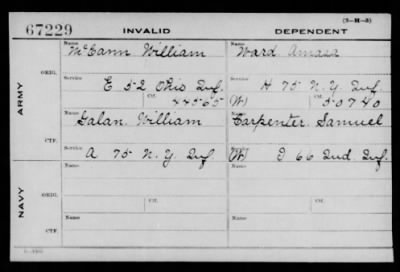 (3-H-3)
67229 INVALID DEPENDENT
Name Name
McCann William Ward Amasa
ARMY
ORIG. Service Service
E 52 Ohio Inf. H 75 N.Y. Inf.
Ctf. 44565 (W) Ctf. 50740
Name Name
Galan William Carpenter Samuel
CTF. Service Service
A 75 N.Y. Inf. (W) D 66 Ind. Inf.
NAVY
Name Name
ORIG. Service Ctf. Service Ctf.
Name Name
CTF. Service Service